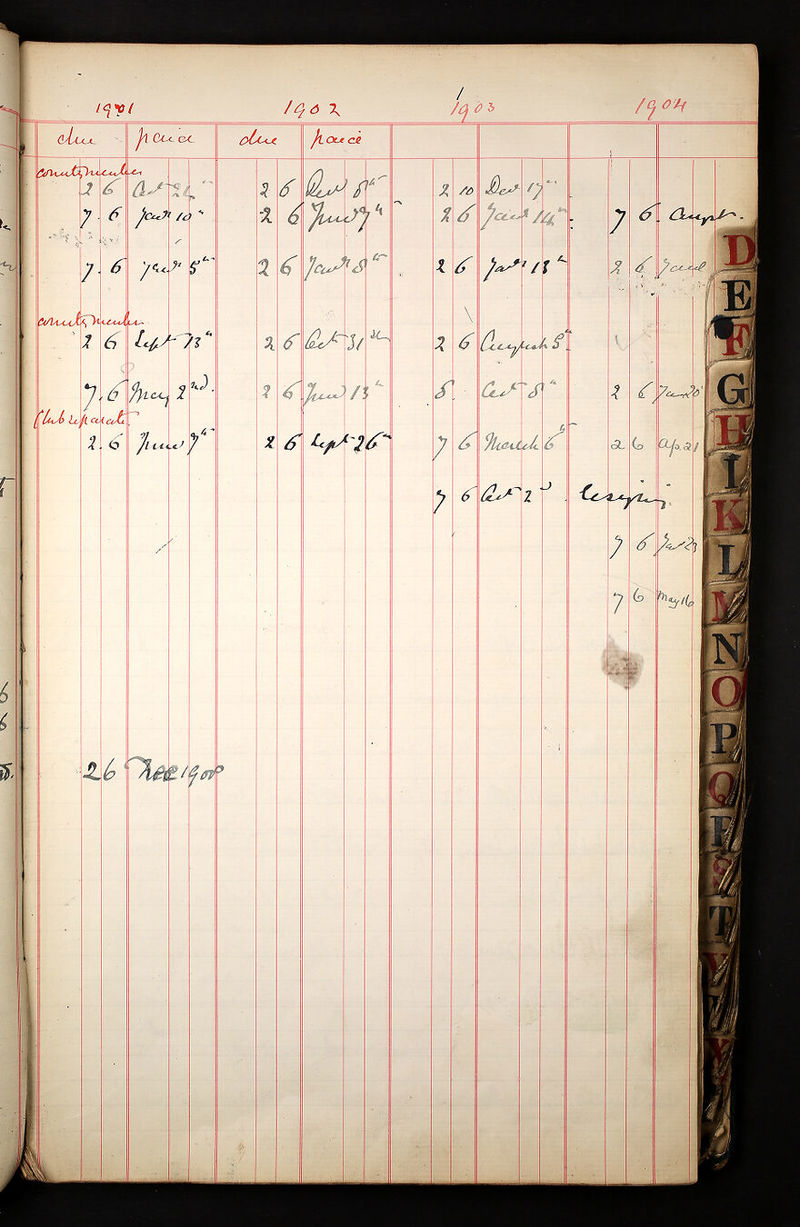 1901 1902 1903 1904
due paid due paid
county member
2 6 Oct 2 6 Dec 8th 2 10 Dec 17th
7. 6 Jan 10th 2 6 June 7th 2 6 Jan 14th 7 6. August
7. 6 Jan 5th 2 6 Jan 8th 2 6 Jan 13th 2 6 Jan
county member
2 6 Sept 13th 2 6 Oct 31st 2 6 August 8th
7. 6 May 2nd. 2 6 June 13th 5. Oct 8th 2 6 Jan 20
Club separate
2. 6 June 7th 2 6 Sept 26th 7 6 March 6th 2 6 Ap. 21
7 6 Oct 2nd resigning
7 6 Jan 23
7 6 May 16
2 6 Dec 1900
D
E
F
G
H
I
K
L
M
N
O
P
Q
R
S
T
V
X